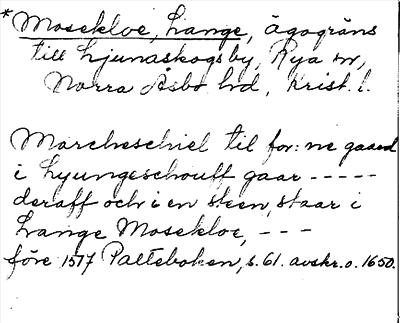 *Mosekloe, Lange, ägogräns
till Ljunaskogsby, Rya sn,
Norra Åsbo hd, Krist. l.
Marcheschiel til for: ne gaard
i Lyungeschouff gaar -----
deraff och i en steen, staar i
Lange Mosekloe, ---
före 1577 Palteboken, s. 61. avskr. o. 1650.